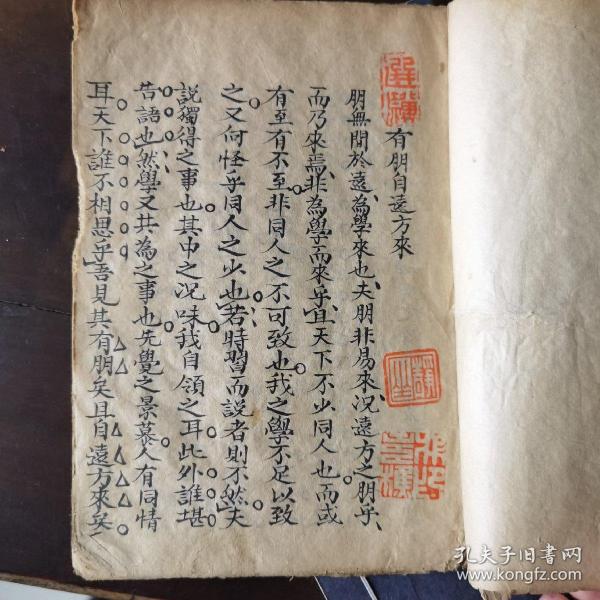 有朋自遠方來
朋無間於遠爲學來也夫朋非易來況遠方之朋乎
而乃來焉非爲學而來乎且天下不少同人也而或
有至有不至非同人之不可致也我之學不足以致
之又何怪乎同人之少也若時習而說者則不然夫
說獨得之事也其中之況味我自領之耳此外誰堪
告語也然學又共爲之事也先覺之景慕人有同情
耳天下誰不相思乎吾見其有朋矣且自遠方來矣
孔夫子旧书网
www.kongfz.com